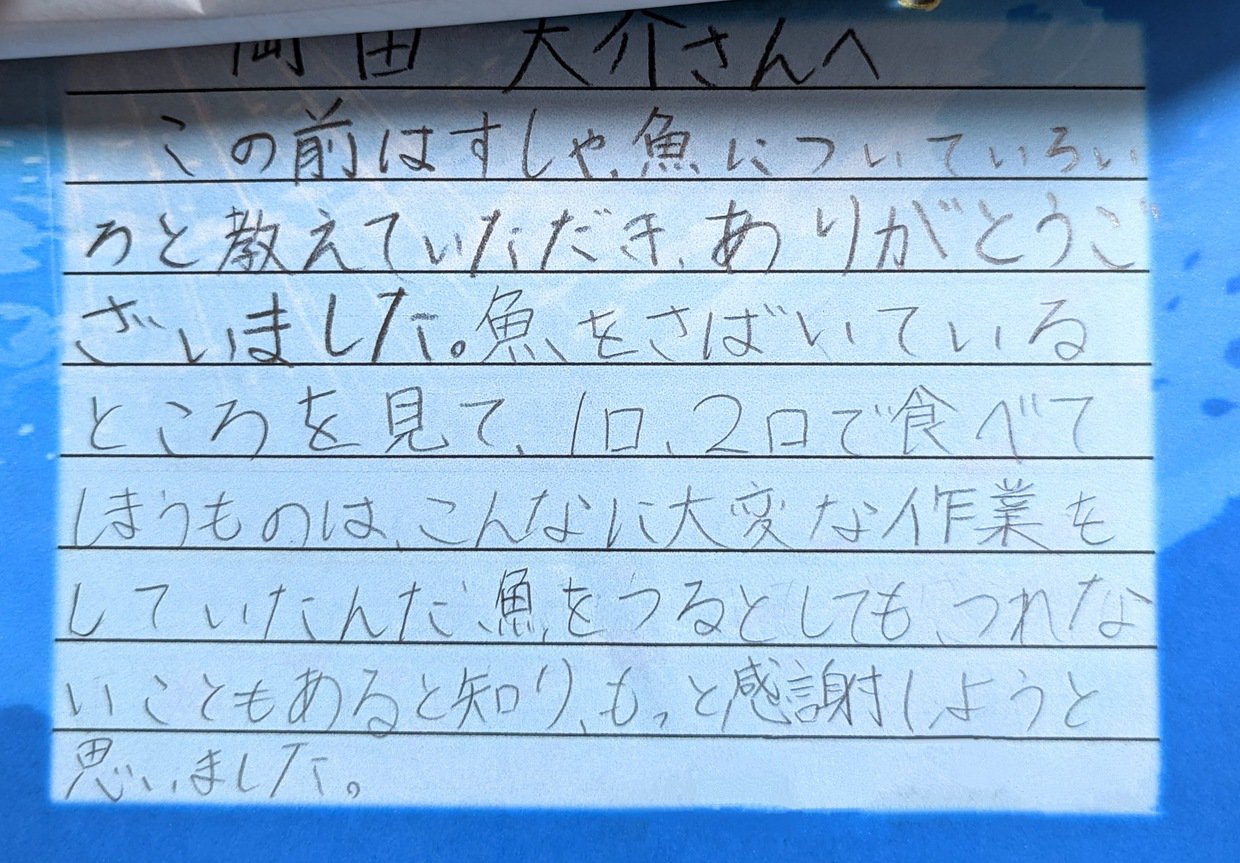 岡田 大介さんへ
この前はすしや、魚についていろい
ろと教えていただき、ありがとうご
ざいました。魚をさばいている
ところを見て、1口、2口で食べて
しまうものは、こんなに大変な作業を
していたんだ、魚をつるとしても、つれな
いこともあると知り、もっと感謝しようと
思いました。